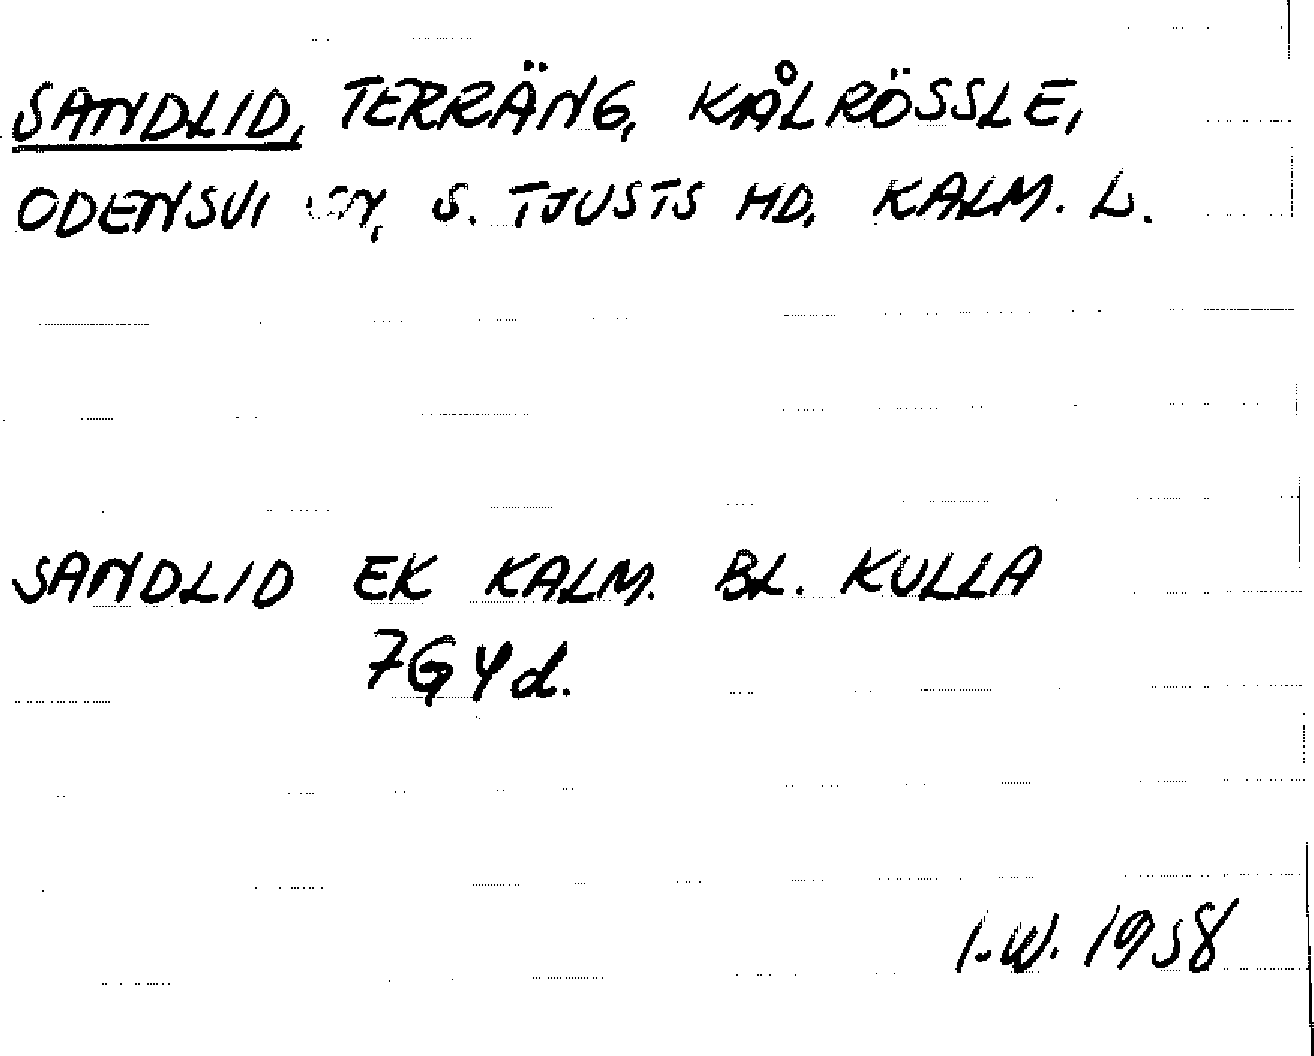 SANDLID, TERRÄNG, KÅLRÖSSLE,
ODENSVI SN, S. TJUSTS HD, KALM. L.
SANDLID EK KALM. BL. KULLA
7G4d.
I.W. 1958